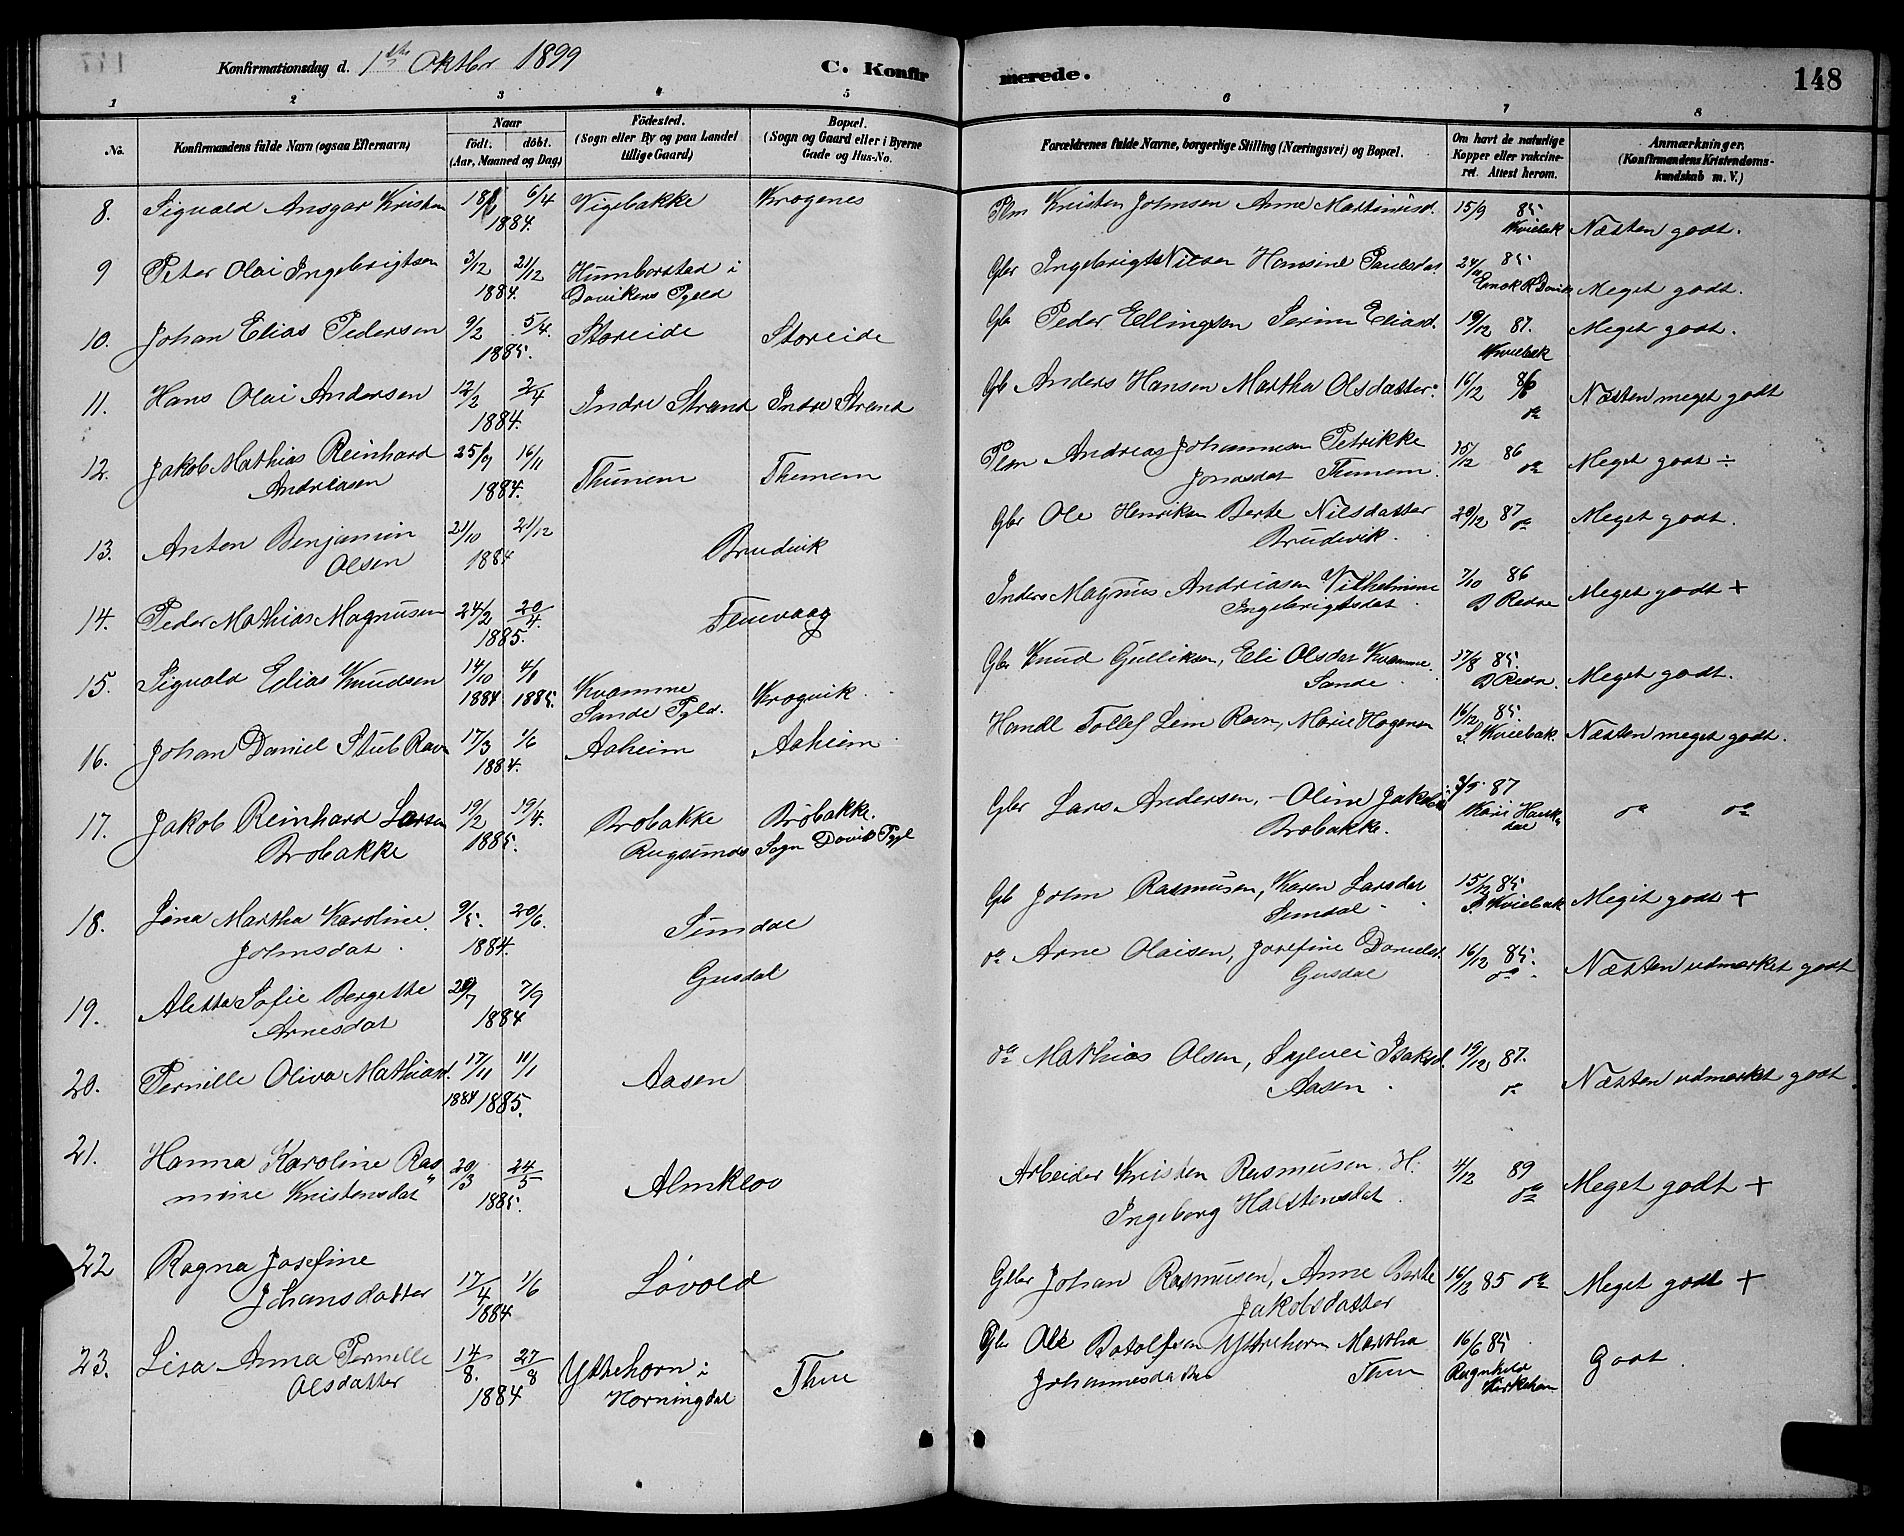 Konfirmationsdag d. 1ste Oktbr 1899
C. Konfirmerede.
148
1 2 3 4 5 6 7 8
No.
Konfirmandens fulde Navn (ogsaa Efternavn)
Naar
født. døbt.
(Aar, Maaned og Dag)
Fødested.
(Sogn eller By og paa Landet
tillige Gaard)
Bopæl.
(Sogn og Gaard eller i Byerne
Gade og Hus-No.
Forældrenes fulde Navne, borgerlige Stilling (Næringsvei) og Bopæl.
Om havt de naturlige
Kopper eller vakcine-
ret. Attest herom.
Anmærkninger.
(Konfirmandens Kristendoms-
kundskab m. V.)
8. Sigvald Ansgar Kristen 6/4 Vigebakke Krogenes Plm Kristen Johnsen Anne Martinusd. 15/9 85
1884. Kviebak Næsten godt.
9 Peter Olai Ingebrigtsen 3/12 21/12 Humborstad i Gbr Ingebrigt Nilsen Hansine Paulsdat 85
1884. Davikens Pgld Meget godt.
10. Johan Elias Pedersen 9/2 5/4 Storeide Storeide Gb Peder Ellingsen Serine Eliasd. 19/12 87. Meget godt.
1885. Kviebak
11. Hans Olai Andersen 12/2 2/4 Indre Strand Indre Strand Gb Anders Hansen Martha Olsdatter. 16/12 86 Næsten meget godt
1884. do
12. Jakob Mathias Reinhard 25/9 16/11 Thunem Thunem Plm Andreas Johannesen Petrikke 15/12 86 do Meget godt ÷
Andreasen 1884. Jonasdat Thunem.
13. Anton Benjamin 21/10 21/12 Brudevik Gbr Ole Henriksen Berte Nilsdatter 20/12 87 do Meget godt.
Olsen 1884 Brudevik.
14. Peder Mathias Magnusen 24/2 20/4. Fluevaag Inders Magnus Andreasen Vilhelmine 7/10 86 Meget godt +
1885. Ingebrigtsdat B Redse
15. Sigvald Elias Knudsen 14/10 4/1 Kvamme Krogvik. Gbr Knud Gulliksen, Eli Olsdat Kvamme. 17/8 85. Meget godt.
1884 1885. Sande Pgld. Sande
16. Johan Daniel Stub Ravn 17/3 1/6 Aaheim Aaheim Handl Tollef Lem Ravn, Marie Hagensen 16/12 85. Næsten meget godt.
1884. S. Kviebak.
17. Jakob Reinhard Larsen 19/2 19/4. Brobakke Brobakke. Gbr Lars Andersen, - Oline Jakobsd 87 do do
Brobakke 1885. Rugsunds Sogn Davik Pgl Brobakke.
18. Lina Martha Karoline 9/5. 20/6. Sundal Gb John Rasmusen, Karen Larsdat 15/12 85. Meget godt +
Johnsdat. 1884. Sundal S. Kviebak
19. Aletta Sofie Bergette 20/7 7/9 Gusdal do Arne Olaisen, Josefine Danielsd. 16/12 85. Næsten udmerket godt
Arnesdat 1884 Gusdal do.
20. Pernille Oliva Mathiasd. 17/11 11/1 Aasen do Mathias Olsen, Sylvei Isaksd. 19/12 87. Næsten udmerket godt
1884 1885. Aasen. do
21. Hanna Karoline Ras 20/3 24/5 Almklov Arbeider Kristen Rasmusen. H. 4/12 89 Meget godt +
mine Kristensdat 1885. Ingeborg Halstensdat. do
22 Ragna Josefine Løvold Johan Rasmusen, Anne Berte 16/12 85 do Meget godt +
Johansdatter 17/4 1/6 1884 Jakobsdatter
23. Lisa Anna Pernille 14/8. 27/8 Yttrehorn i Thue Gbr Ole Botolfsen Yttrehorn Martha 16/6 85 Godt.
Olsdatter 1884 Horningdal Johannesdatter Thue Ragnhild
Kirkehorn